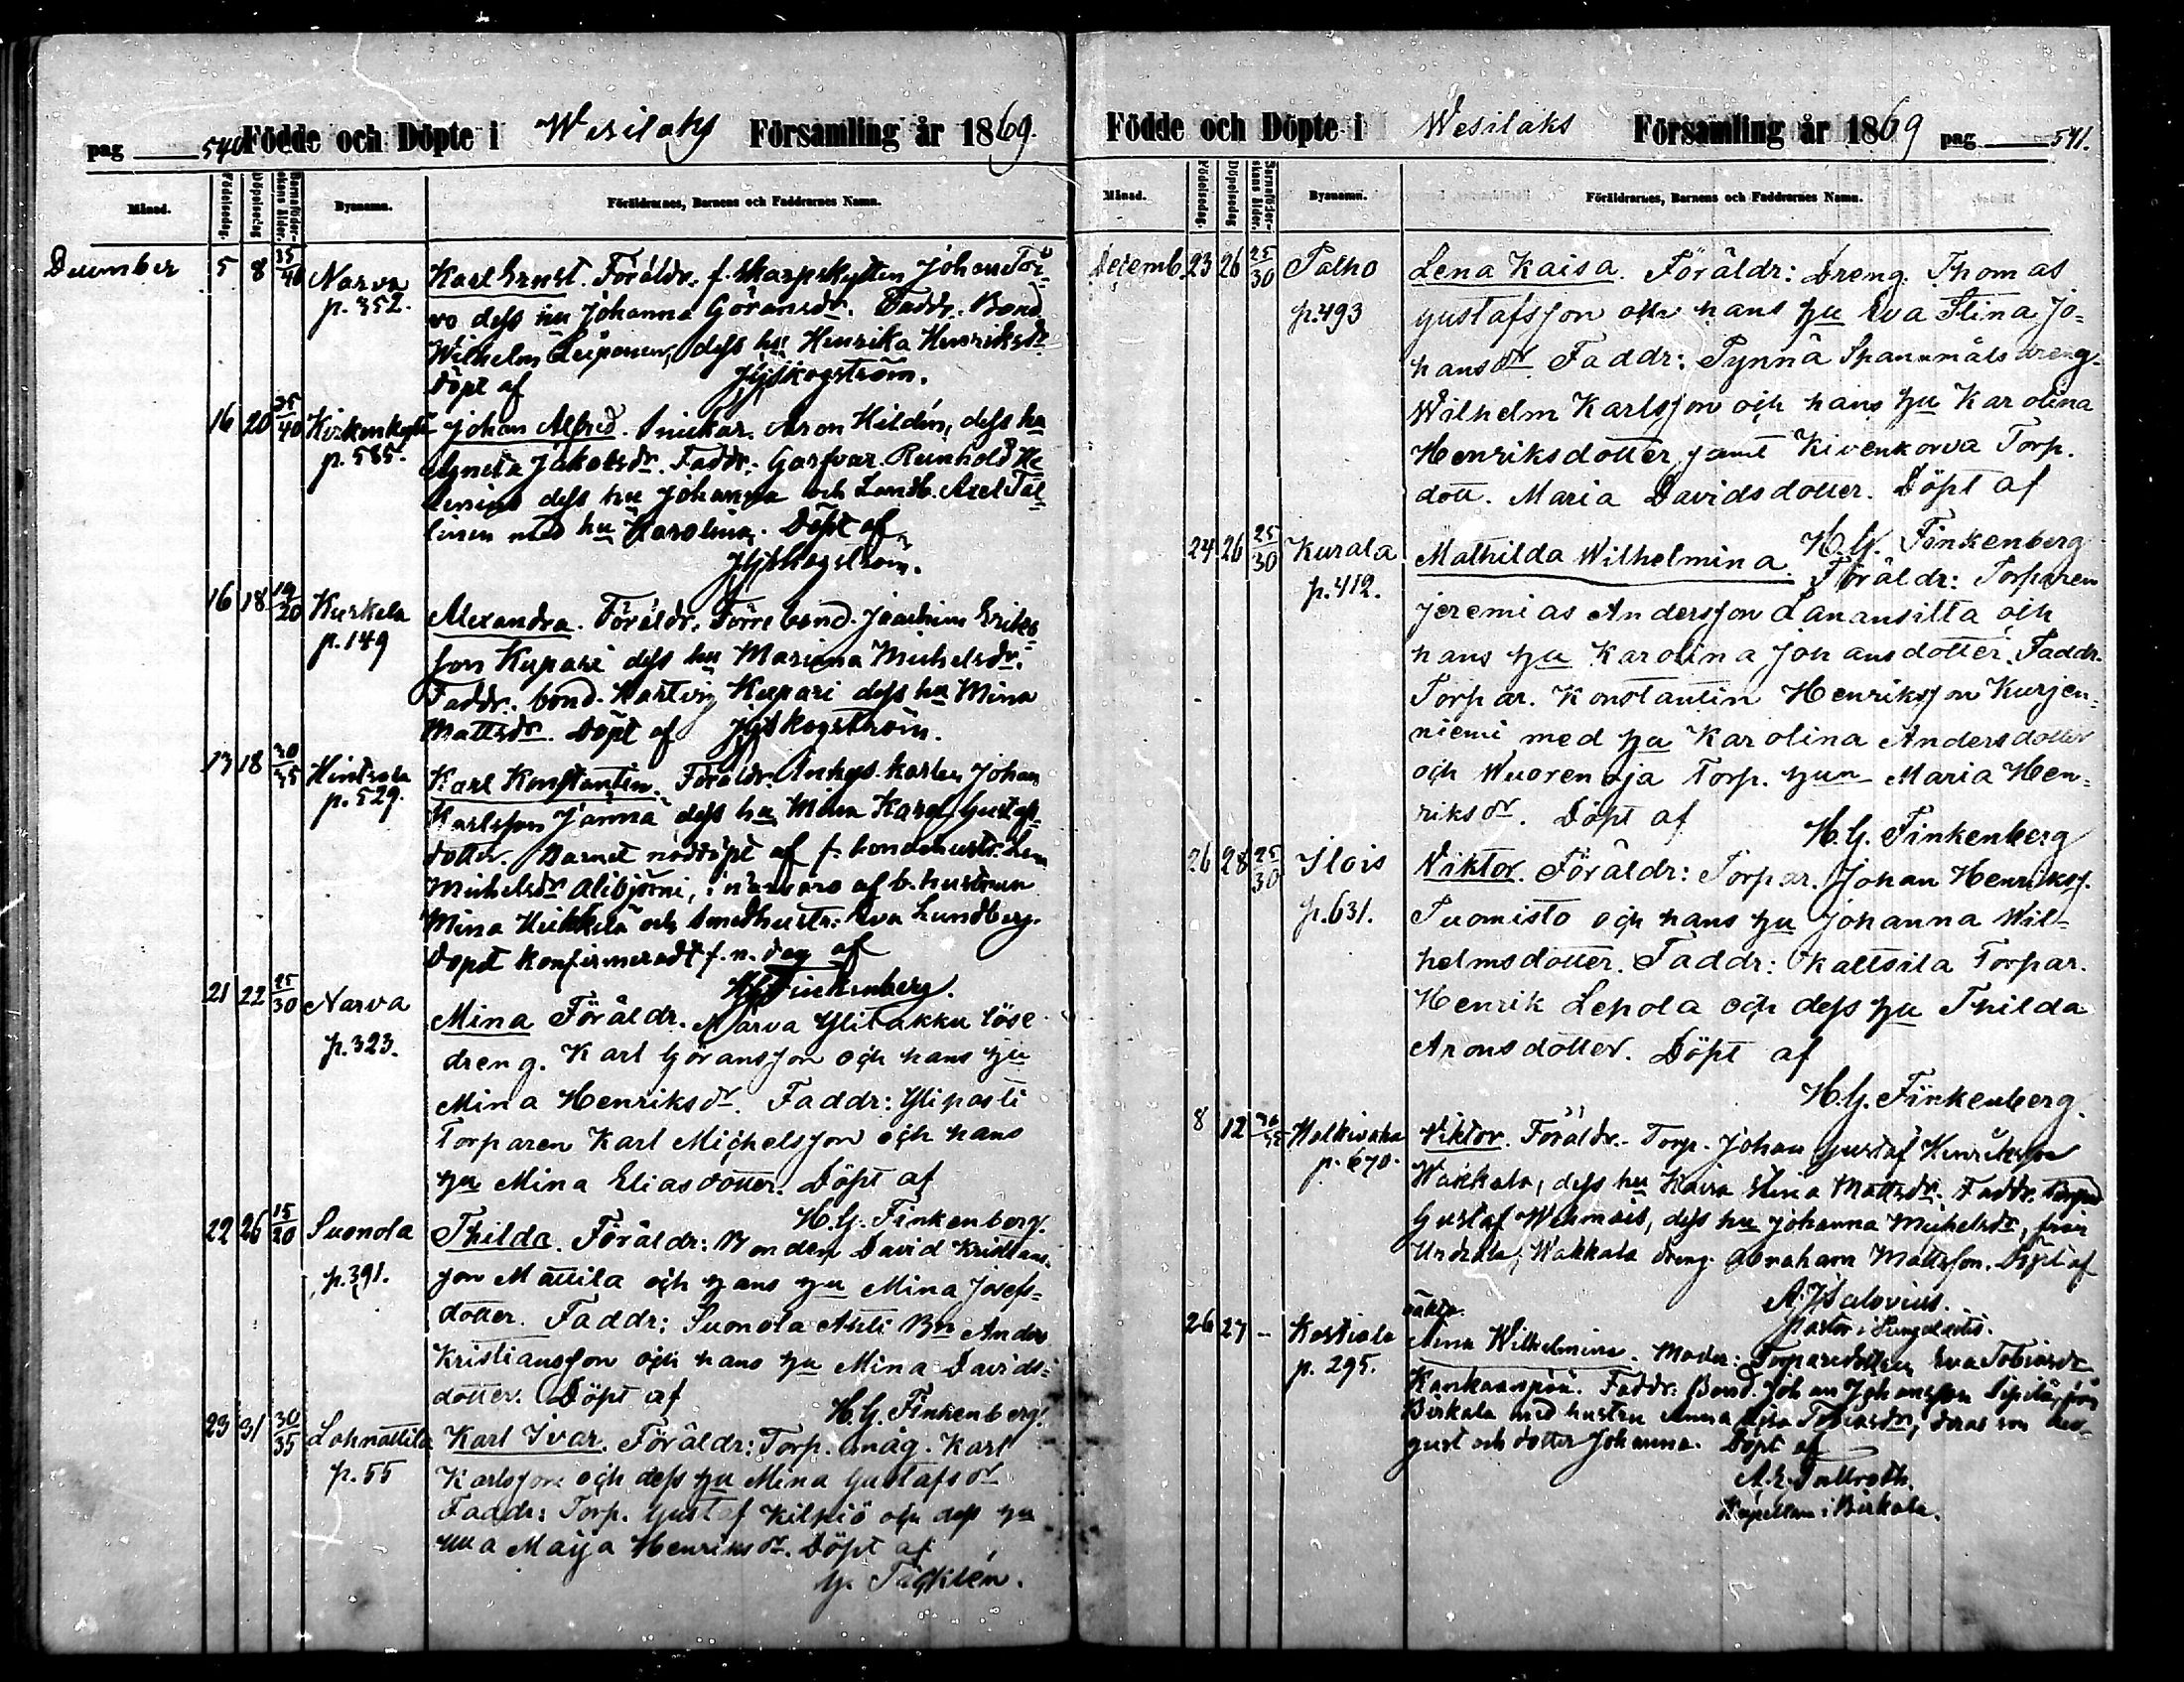 pag 540 Födde och Döpte i Wesilaks Församling år 1869.
Månad. Födelsedag. Döpelsedag Barnaföderskans ålder. Bynamn. Föräldrarnes, Barnens och Faddrarnes Namn.
December 5 8 35/40 Narva Karl Ernst. Föräldr. f. Skarpskytten Johan Tör-
p. 352. vo dess hu Johanna Göransdr. Faddr. Bond.
Wilhelm Leiponen, dess hu Henrika Henriksdr
Döpt af Skogström.
16 20 35/40 Johan Alfred. Snickar. Aron Hildén, dess hu
p. 585. Agneta Jakobsdr. Faddr. Garfvar. Reinhold He-
lenius dess hu Johanna och Landb. Axel Tal-
linen med hu Karolina. Döpt af
Skogström.
16 18 19/20 Kurkela Alexandra. Föräldr. Förre bond. Joachim Eriks-
p. 149 son Kupari dess hu Mariana Michelsdr.
Faddr. bond. Hartvig Kupari dess hu Mina
Mattsdr. Döpt af Skogström.
17 18 30/35 Hinsala Karl Konstantin. Föräldr. Johan
p. 529. Karlsson Jännä dess hu Mina Karol. Gustafs-
dotter. Barnet nöddöpt af f. bondehustr. Lena
Michelsdr Alibjörni, i närvaro af b. hustrun
Mina Heikkilä och Smedhustr. Eva Lundberg.
Dopet konfirmeradt f. n. dag af
H.G. Finkenberg.
21 22 25/30 Narva Mina Föräldr. Narva Ylitakku löse
p. 323. dreng. Karl Göransson och hans hu
Mina Henriksdr. Faddr: Yliposti
Torparen Karl Michelsson och hans
hu Mina Eliasdotter. Döpt af
H.G. Finkenberg.
22 26 15/20 Suonola Thilda. Föräldr: Bonden David Kristians-
p. 391. son Mattila och hans hu Mina Josefs-
dotter. Faddr: Suonola Antti Bn Anders
Kristiansson och hans hu Mina Davids-
dotter. Döpt af
H.G. Finkenberg.
23 31 30/35 Lahnattila Karl Ivar. Föräldr: Torp. måg. Karl
p. 55 Karlsson och dess hu Mina Gustafsdr
Faddr: Torp. Gustaf Kilpiö och dess hu
Ulla Maija Henriksdr. Döpt af
G. Täcklén.
Födde och Döpte i Wesilaks Församling år 1869 pag 541.
Månad. Födelsedag. Döpelsedag Barnaföderskans ålder. Bynamn. Föräldrarnes, Barnens och Faddrarnes Namn.
Decemb. 23 26 25/30 Palho Lena Kaisa. Föräldr: Dreng. Thomas
p. 493 Gustafsson och hans hu Eva Stina Jo-
hansdr. Faddr: Pynnä Spanmåls dreng.
Wilhelm Karlsson och hans hu Karolina
Henriksdotter, jemt Kivenkorva Torp.
dott. Maria Davidsdotter. Döpt af
H.G. Finkenberg
24 26 25/30 Kurala Mathilda Wilhelmina. Föräldr: Torparen
p. 412. Jeremias Andersson Lanansilta och
hans hu Karolina Johansdotter. Faddr.
Torpar. Konstantin Henriksson Kurjen-
niemi med hu Karolina Andersdotter
och Wuorenoja Torp. hun Maria Hen-
riksdr. Döpt af
H.G. Finkenberg
26 28 25/30 Ilois Viktor. Föräldr: Torpar. Johan Henrikss.
p. 631. Tuomisto och hans hu Johanna Wil-
helmsdotter. Faddr: Kaltsila Torpar.
Henrik Lepola och dess hu Thilda
Aronsdotter. Döpt af
H.G. Finkenberg.
8 12 Halkivaha Viktor. Föräldr. Torp. Johan Gustaf Henriksson
p. 670. Wakkala, dess hu Kaisa Stina Mattsdr. Faddr.
Gustaf Wehmais, dess hu Johanna Michelsdr, från
Urdiala, Wakkala dreng Abraham Mattsson. Döpt af
A. J. Salovius.
pastor i Pungalaitis.
26 27 – Kostiala oäkta.
p. 295. Anna Wilhelmina. Moder: Torparedottern Eva Tobiasdr
Kankaanpää. Faddr: Bond. Johan Johansson Sipilä, från
Birkala med hustru Anna Tobiasdr, deras son Au-
gust och dotter Johanna. Döpt af
A. E. Tallroth.
Kapellan i Birkala.